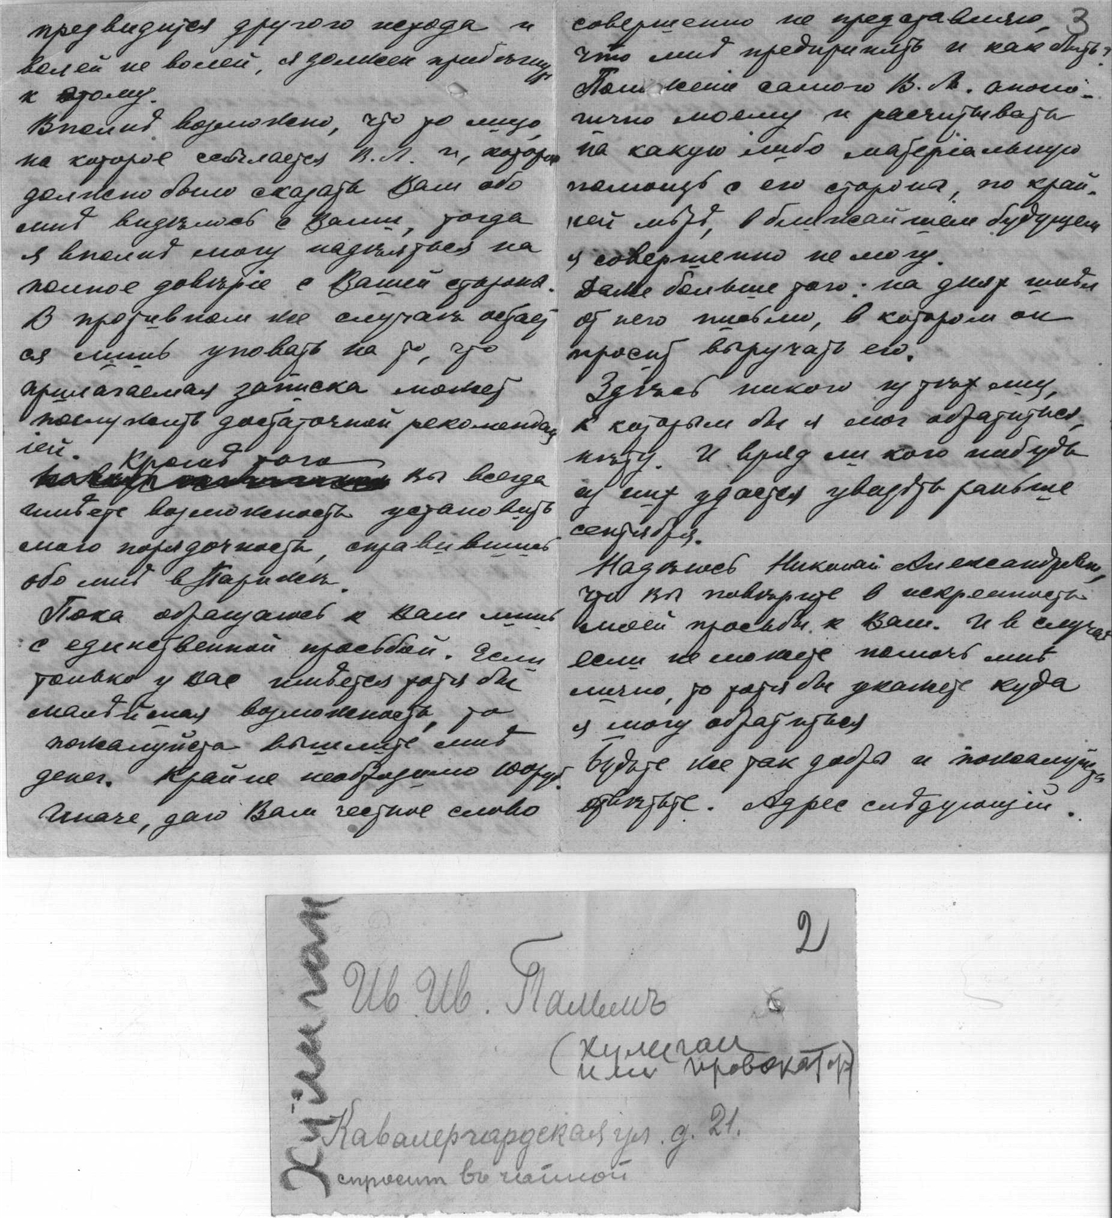 предвидится другого исхода и
волей не волей, я должен прибегнуть
к этому.
Вполнѣ возможно, что то лицо,
на которое ссылается В.Л. и, которое
должно было сказать Вам обо
мнѣ виделось с Вами, тогда
я вполнѣ могу надѣяться на
полное довѣріе с Вашей стороны.
В противном же случаѣ остает
ся лишь уповать на то, что
прилагаемая записка может
послужить достаточной рекомендац
іей.
Кромѣ того
Вы всегда
имѣете возможность установить
мою порядочность, справившись
обо мнѣ в Парижѣ.
Пока обращаюсь к Вам лишь
с единственной просьбой. Если
только у вас имѣется хотя бы
малѣйшая возможность, то
пожалуйста вышлите мнѣ
денег. Крайне необходимо
Иначе, даю Вам честное слово
3
совершенно не представляю,
что мнѣ предпринять и как быть?
Положеніе самого В.Л. анало-
гично моему и расчитывать
на какую либо матеріальную
помощь с его стороны, по край-
ней мѣрѣ, в ближайшем будущем
я совершенно не могу.
Даже больше того: на днях имѣл
от него письмо, в котором он
просит выручать его.
Здѣсь никого из тѣх лиц,
к которым бы я мог обратиться,
нѣту. И вряд ли кого нибудь
из них удастся увидѣть раньше
сентября.
Надѣюсь Николай Александрович,
что Вы повѣрите в искренность
моей просьбы к Вам. И в случаѣ
если не можете помочь мнѣ
лично, то хотя бы укажете куда
я могу обратиться
Будьте же так добры и пожалуйста
отвѣтьте. Адрес слѣдующій.
2
Хулиган
Ив. Ив. Пальмъ
(хулиган
или провокатор)
Кавалергардская ул. д. 21.
спросит въ чайной